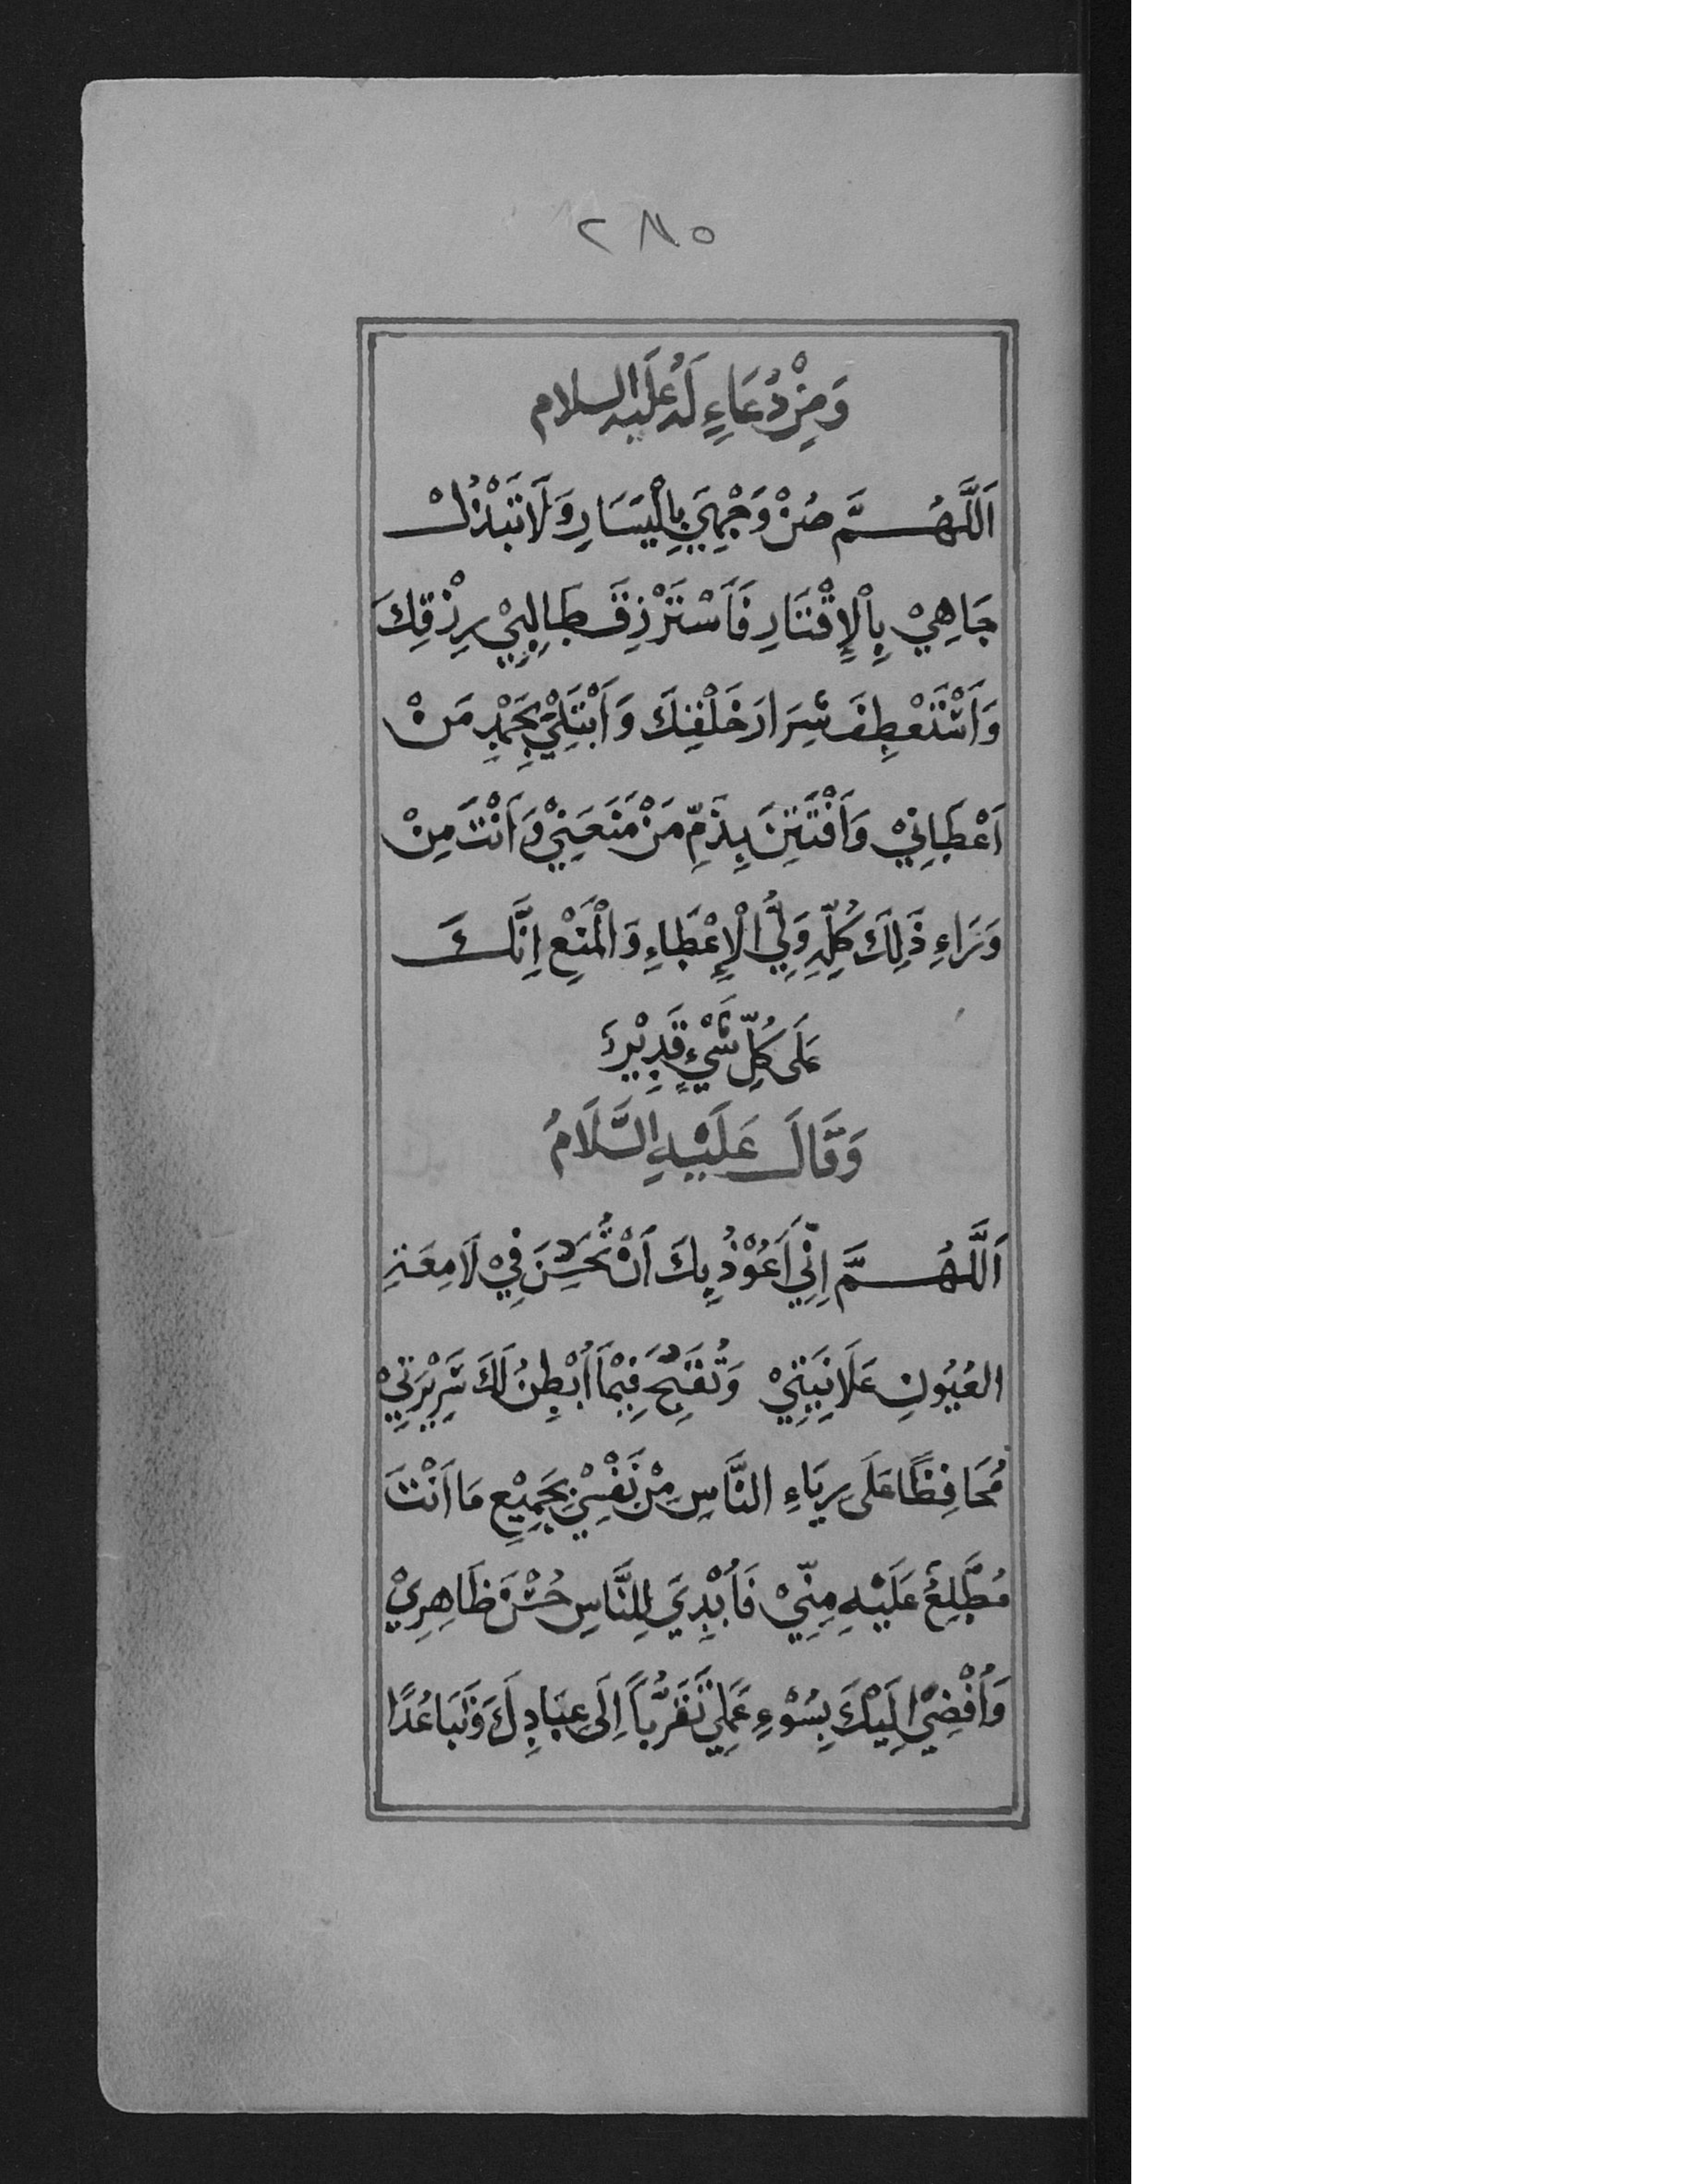 ٢٨٥
وَمِنْ دُعَاءٍ لَهُ عَلَيْهِ السلام
اَللَّهُمَّ صُنْ وَجْهِيَ بِالْيَسَارِ وَلَا تَبْذُلْ
جَاهِيْ بِالْإِقْتَارِ فَأَسْتَرْزِقَ طَالِبِيْ رِزْقِكَ
وَاَسْتَعْطِفَ شِرَارَ خَلْقِكَ وَاَبْتَلِيَ بِحَمْدِ مَنْ
اَعْطَانِيْ وَاَفْتَتِنَ بِذَمِّ مَنْ مَنَعَنِيْ وَاَنْتَ مِنْ
وَرَاءِ ذَلِكَ كُلِّهِ وَلِيُّ الْإِعْطَاءِ وَالْمَنْعِ اِنَّكَ
عَلَى كُلِّ شَيْءٍ قَدِيْرٌ
وَقَالَ عَلَيْهِ السَّلَامُ
اَللَّهُمَّ اِنِّيْ اَعُوْذُ بِكَ اَنْ تُحَسِّنَ فِيْ لَامِعَةِ
العُيُونِ عَلَانِيَتِيْ وَتُقَبِّحَ فِيْمَا اُبْطِنُ لَكَ سَرِيْرَتِيْ
مُحَافِظًا عَلَى رِيَاءِ النَّاسِ مِنْ نَفْسِيْ بِجَمِيْعِ مَا اَنْتَ
مُطَّلِعٌ عَلَيْهِ مِنِّيْ فَاُبْدِيَ لِلنَّاسِ حُسْنَ ظَاهِرِيْ
وَاُفْضِيْ اِلَيْكَ بِسُوْءِ عَمَلِيْ تَقَرُّبًا اِلَى عِبَادِكَ وَتَبَاعُدًا